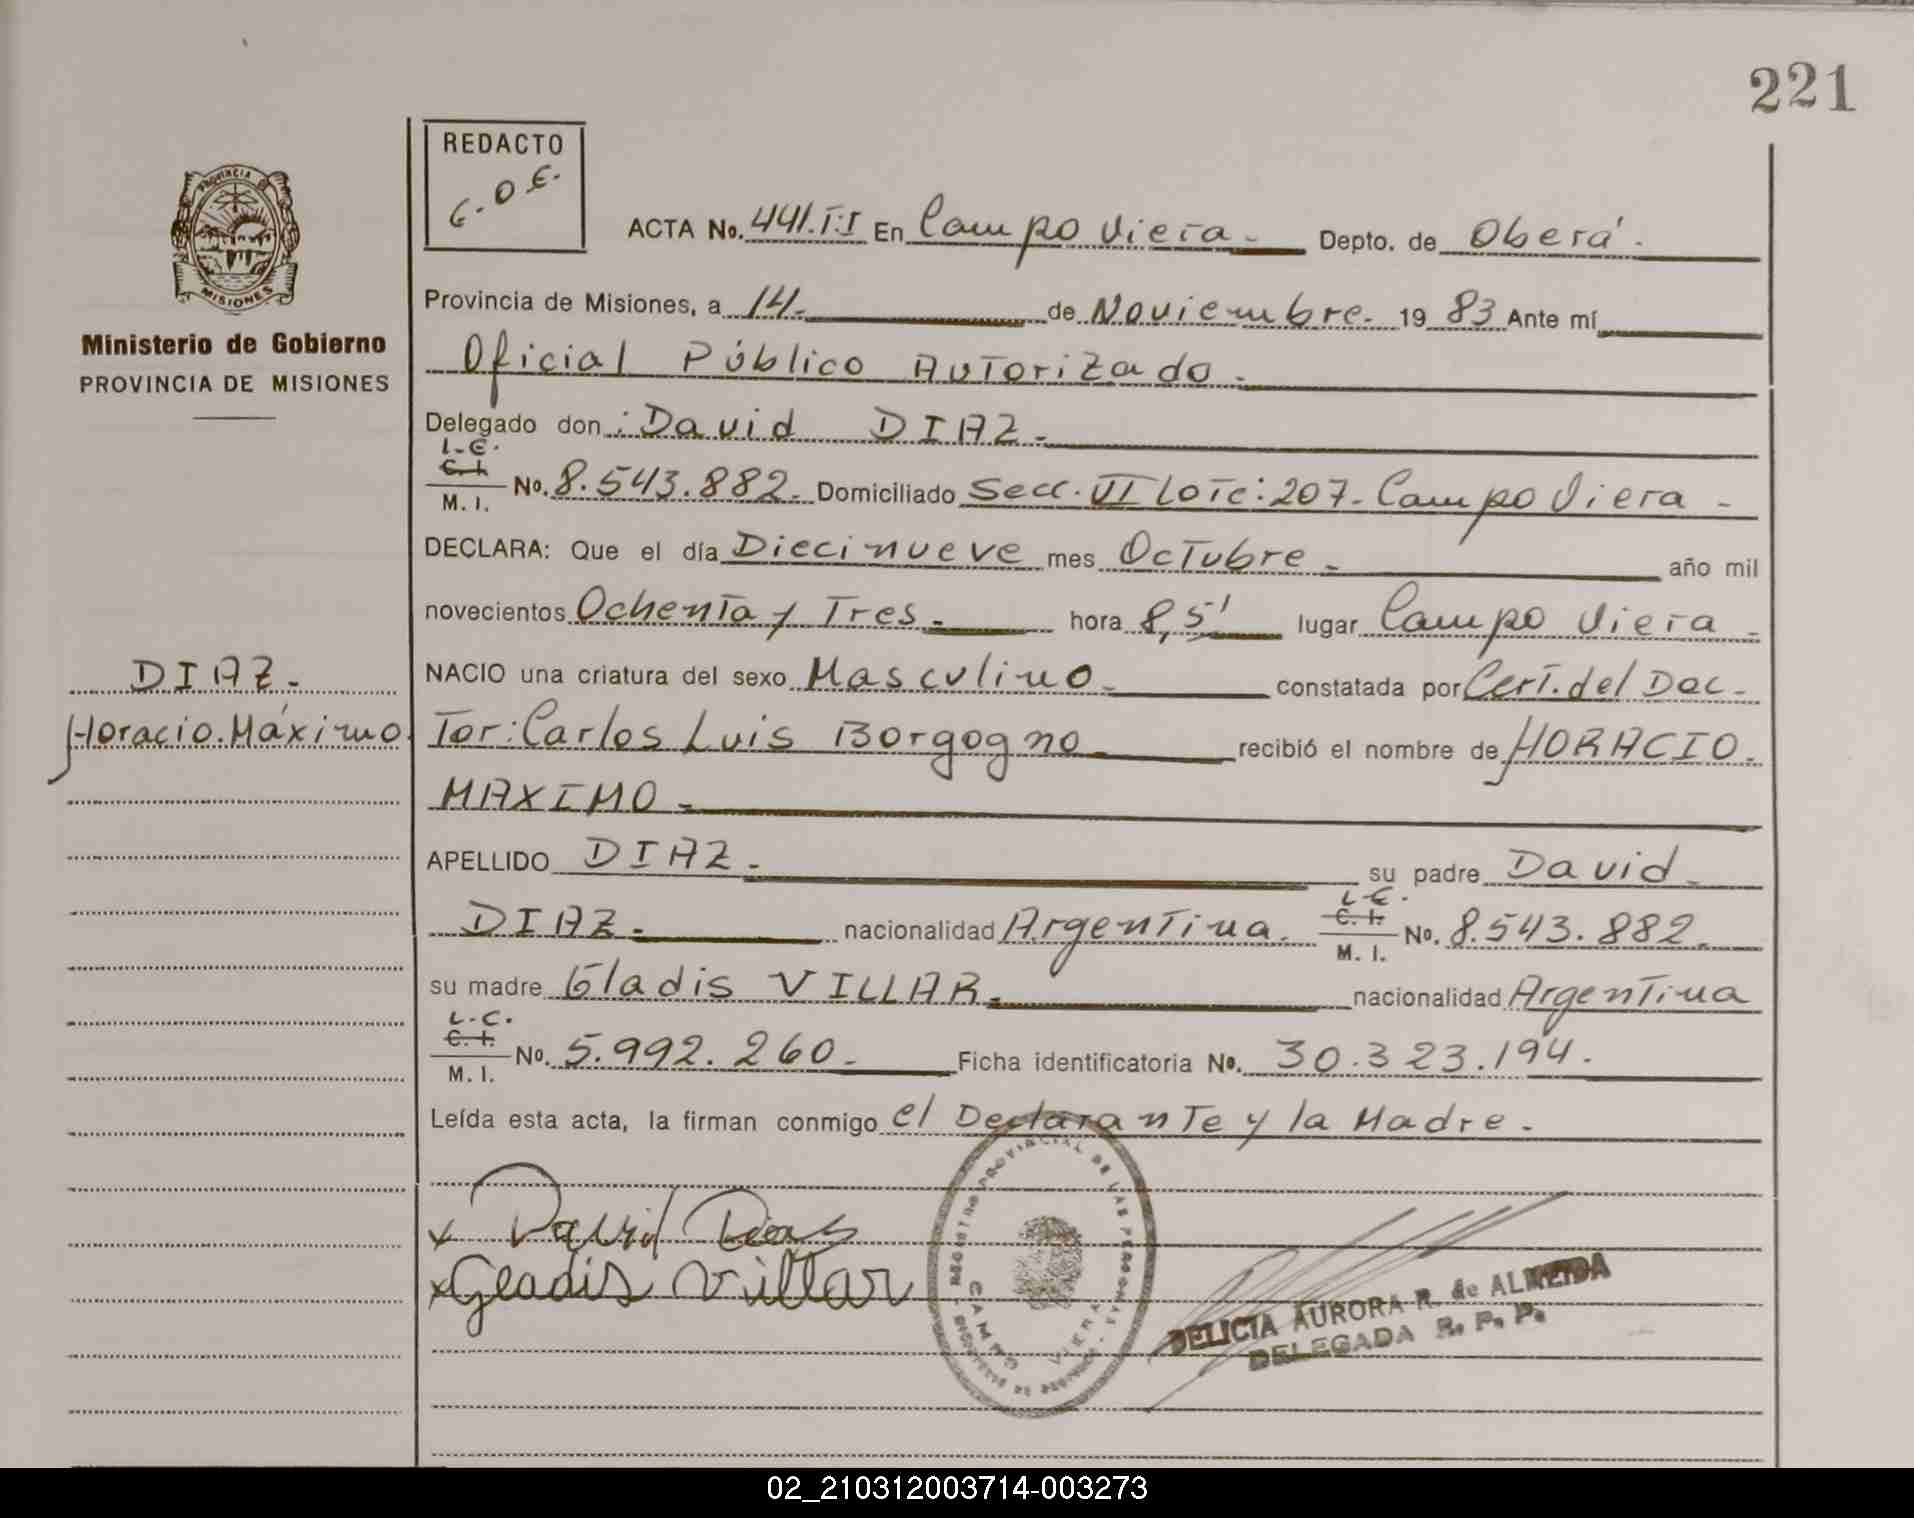 221
REDACTO
PROVINCIA
MISIONES
ACTA No. 441.T.I En Campo Viera - Depto. de Oberá.
Ministerio de Gobierno
PROVINCIA DE MISIONES
Provincia de Misiones, a 14. de Noviembre. 19 83 Ante mí
Oficial Público Autorizado.
Delegado don: David DIAZ.
L.E.
C. I.
M. I.
No. 8.543.882. Domiciliado Secc. VI Lote: 207. Campo Viera -
DECLARA: Que el día Diecinueve mes Octubre. año mil
novecientos Ochenta y Tres. hora 8,5' lugar Campo Viera -
NACIO una criatura del sexo Masculino. constatada por Cert. del Doc-
tor: Carlos Luis Borgogno recibió el nombre de HORACIO.
MAXIMO -
DIAZ.
Horacio. Máximo.
APELLIDO DIAZ. su padre David
DIAZ. nacionalidad Argentina.
L.E.
C. I.
M. I.
No. 8.543.882.
su madre Gladis VILLAR. nacionalidad Argentina
L.C.
C. I.
M. I.
No. 5.992.260. Ficha identificatoria No. 30.323.194.
Leída esta acta, la firman conmigo el Declarante y la Madre.
x David Dias
x Gladis Villar
REGISTRO PROVINCIAL DE LAS PERSONAS
CAMPO VIERA
DELICIA AURORA R. de ALMEIDA
DELEGADA R. P. P.
02_210312003714-003273